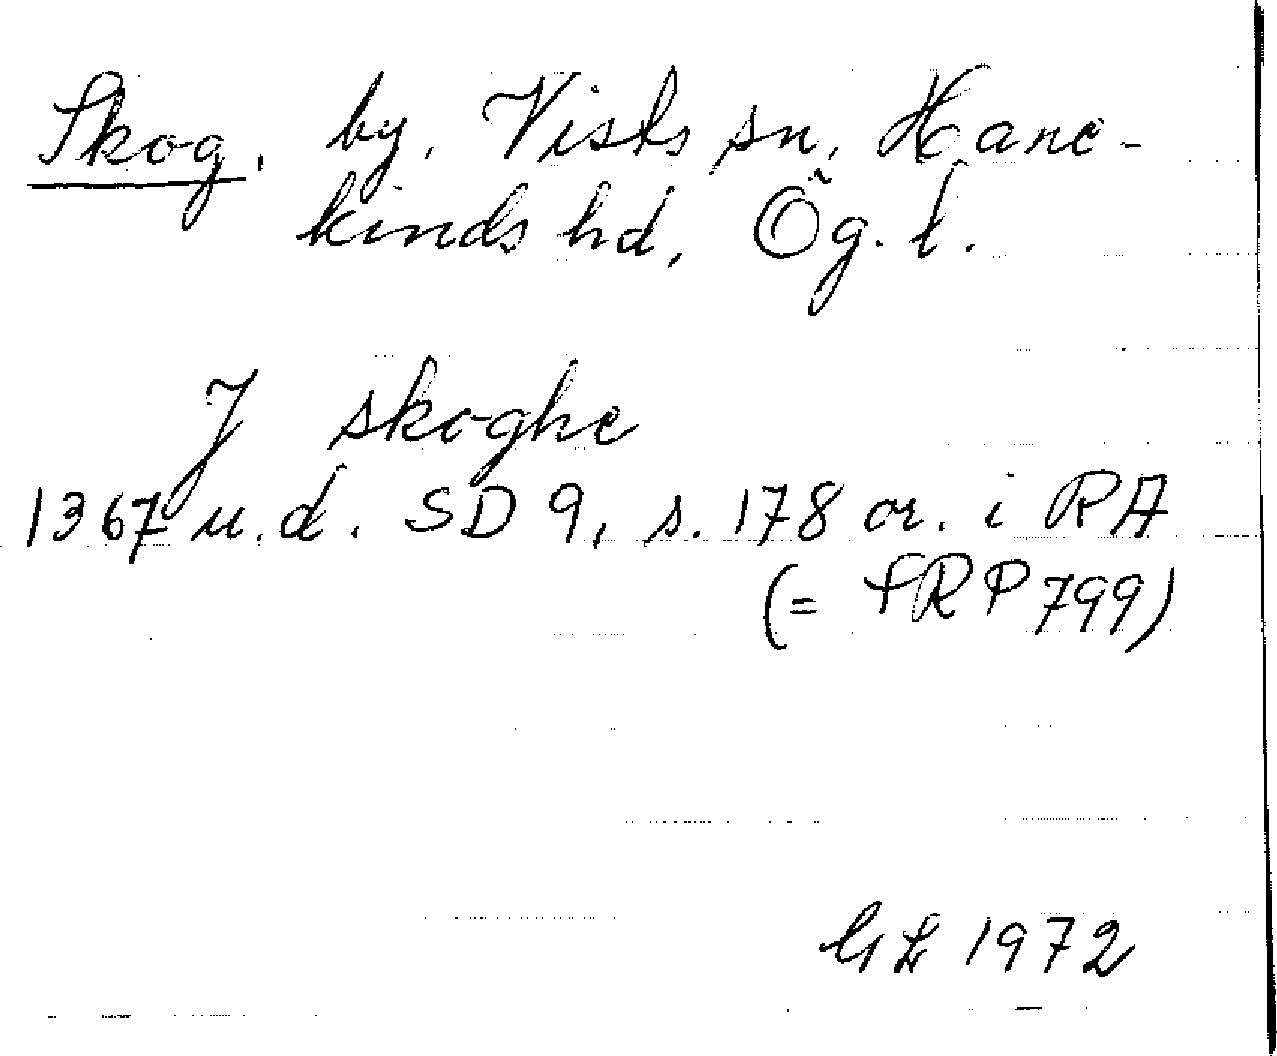 Skog, by, Vists sn, Hane-
kinds hd, Ög. l.
J skoghe
1367 u.d. SD 9, s. 178 or. i RA
(= SRP 799)
GL 1972